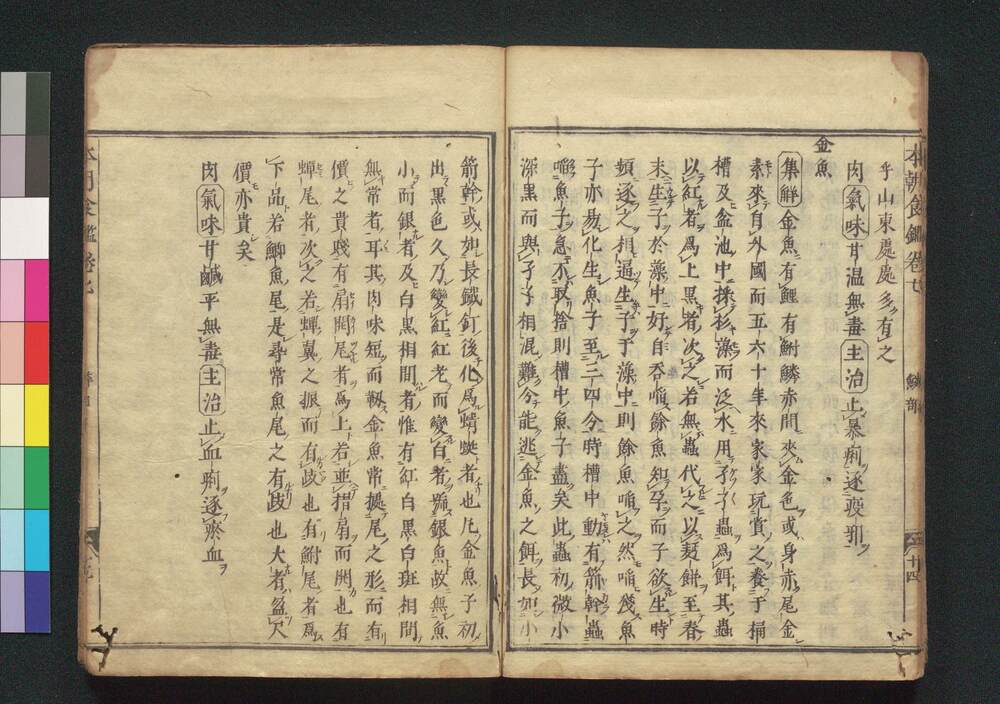 本朝食鑑 卷七 鱗部 十四
乎山東處處多有之
肉氣味甘温無毒主治止暴痢逐瘦邪
金魚
集觧金魚有鯉有鮒鱗赤間夾金色或身赤尾金
素來自外國而五六十年來家家玩賞之養于桶
槽及盆池中採杉藻而泛水用孑孑蟲爲餌其蟲
以紅者爲上黒者次之若無蟲代之以麪餅至春
末生子於藻中好自吞啗餘魚知孕而子欲生時
頻逐之相逼生子于藻中則餘魚啗之然啗殘魚
子亦易化生魚子至三四分時槽中動有箭幹蟲
啗魚子急不取捨則槽中魚子盡矣此蟲初微小
深黒而與孑孑相混難分能逃金魚之餌長如小
箭幹或如長鐵釘後化爲蜻蜓者也凡金魚子初
出黒色久乃變紅紅老而變白者號銀魚故無魚
小而銀者及白黒相間者惟有紅白黒白斑相間
無常者耳其肉味短而靱金魚常擬尾之形而有
價之貴賤有扇開尾者爲上若並摺扇而開也有
蟬尾者次之若蟬翼之振而有歧也有鮒尾者爲
下品若鯽魚尾是尋常魚尾之有歧也大者盆尺
價亦貴矣
肉氣味甘鹹平無毒主治止血痢逐瘀血